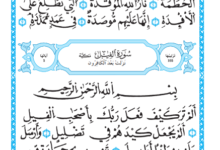 الْحُطَمَةُ نَارُ اللَّهِ الْمُوقَدَةُ الَّتِي تَطَّلِعُ عَلَى
الْأَفْئِدَةِ إِنَّهَا عَلَيْهِم مُّؤْصَدَةٌ فِي عَمَدٍ مُّمَدَّدَةٍ
سُورَةُ الْفِيلِ مَكِّيَّة
نزلت بعد الكافرون
بِسْمِ اللَّهِ الرَّحْمَٰنِ الرَّحِيمِ
أَلَمْ تَرَ كَيْفَ فَعَلَ رَبُّكَ بِأَصْحَٰبِ الْفِيلِ
أَلَمْ يَجْعَلْ كَيْدَهُمْ فِي تَضْلِيلٍ وَأَرْسَلَ